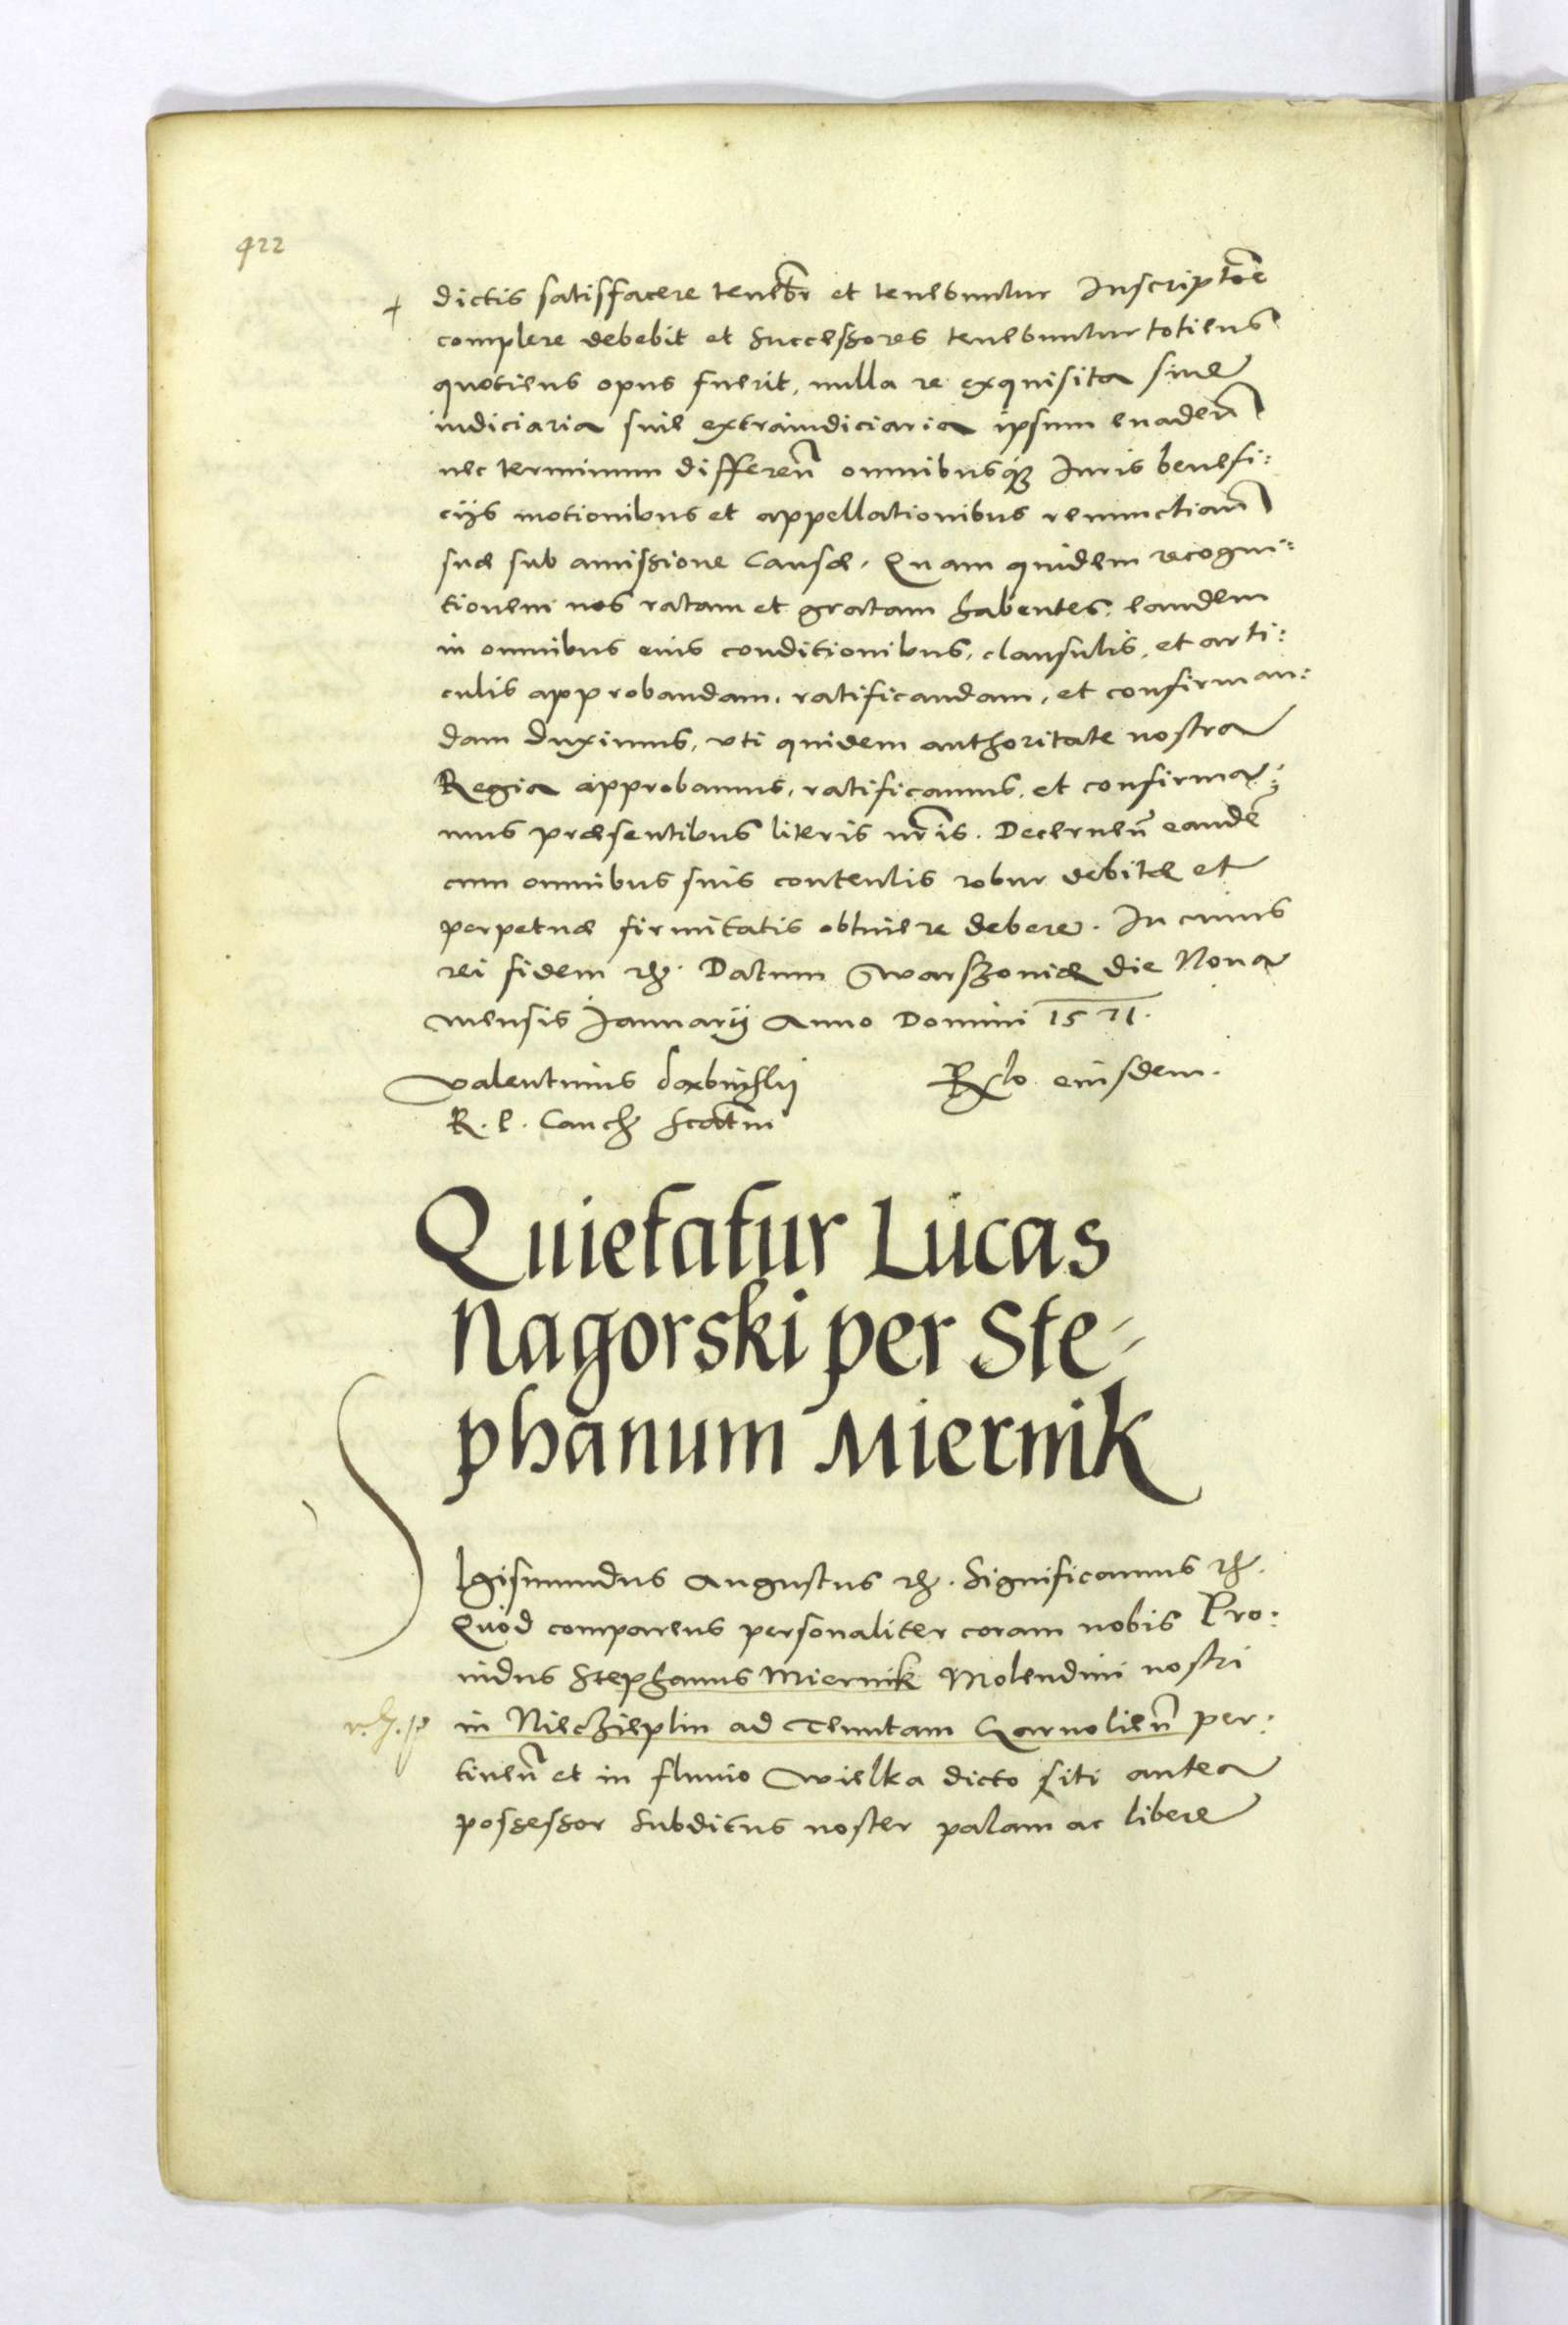 422
+ dictis satisfacere tenebr et tenebuntur Inscriptõe
complere debebit et Successores tenebuntur totiens
quotiens opus fuerit, nulla re exquisita siue
iudiciaria siue extraiudiciaria ipsum euadeñ
nec terminum differeñ omnibusq3 Iuris benefi:
cijs motionibus et appellationibus renunctiañ
suæ sub amissione Causæ. Quam quidem recogni:
tionem nos ratam et gratam habentes, eandem
in omnibus eius conditionibus, clausulis, et arti:
culis approbandam, ratificandam, et confirman:
dam duximus, vti quidem authoritate nostra
Regia approbamus, ratificamus, et confirma:
mus præsentibus literis nris. Decerneñ eandẽ
cum omnibus suis contentis robur debitæ et
perpetuæ firmitatis obtinere debere. In cuius
rei fidem etc. Datum Warszouiæ die Nona
mensis Januarij Anno Domini 1571.
Valentinus
Rlo eiusdem.
R. P. Canc
Quietatur Lucas
Nagorski per Ste=
phanum Miernik
Sigismundus Augustus etc. Significamus etc.
Quod comparens personaliter coram nobis Pro:
uidus Stephanus Miernik Molendini nostri
in Nieczieplin ad Tenutam Garuolieñ per:
tineñ et in fluuio Wielka dicto siti antea
possessor Subditus noster palam ac libere